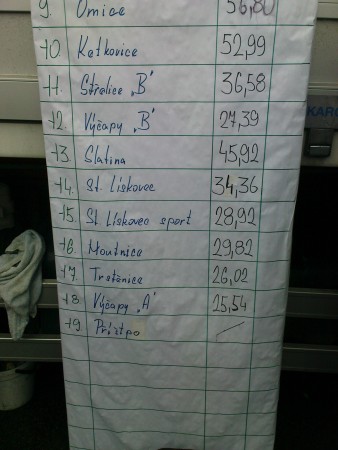 9. Omice 56,80
10. Ketkovice 52,99
11. Střelice „B" 36,58
12. Výčapy „B" 27,39
13. Slatina 45,92
14. St. Lískovec 34,36
15. St. Lískovec sport 28,92
16. Moutnice 29,82
17. Trstěnice 26,02
18. Výčapy „A" 25,54
19. Příštpo
KARO